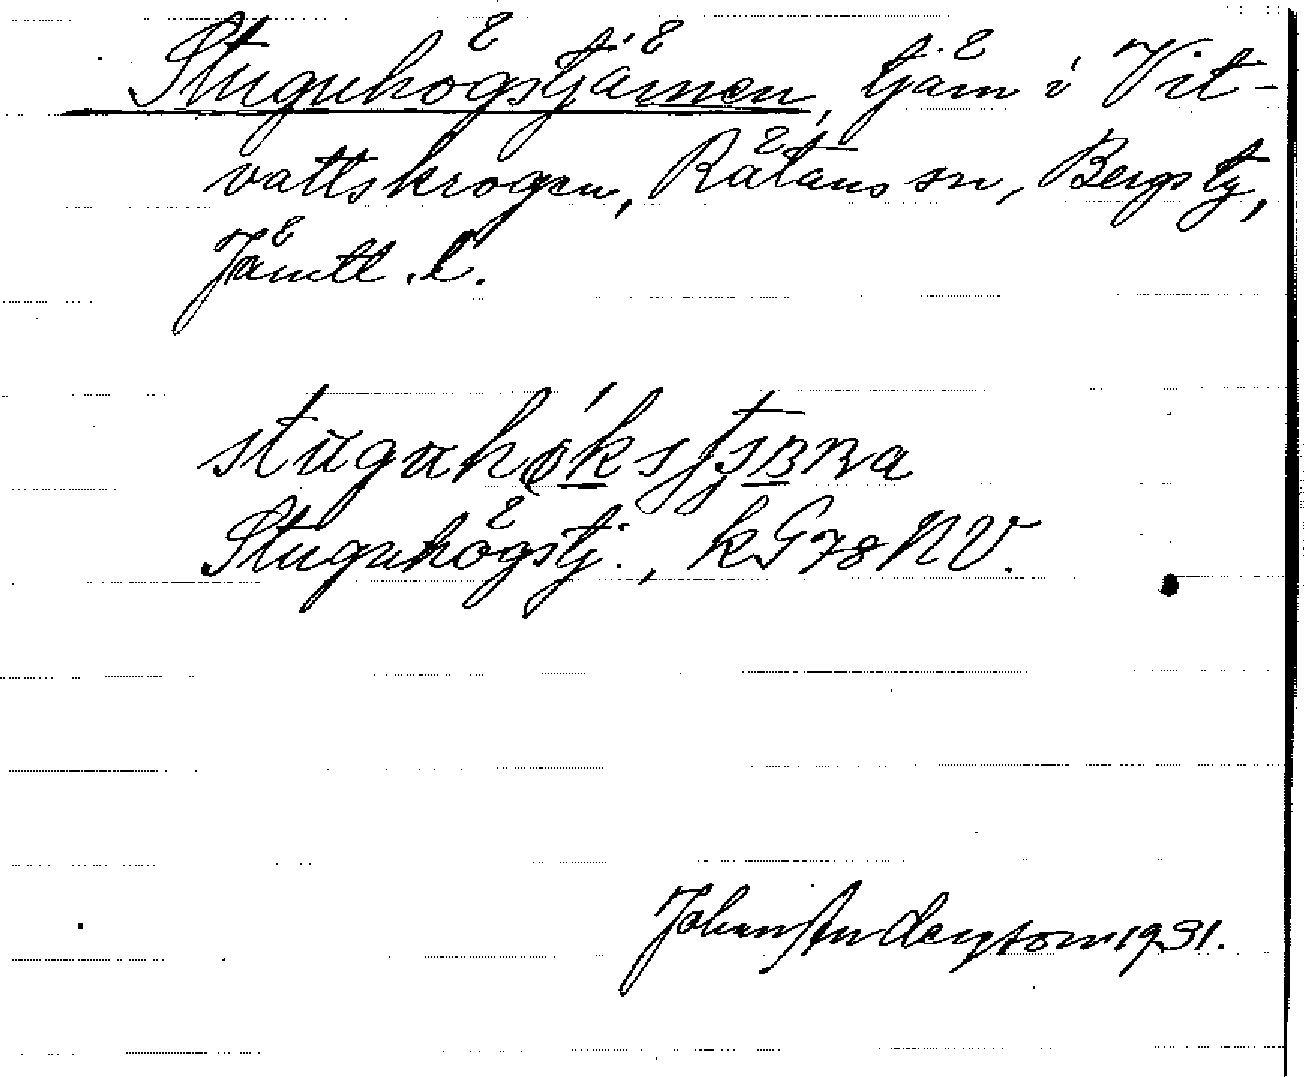 Stuguhögstjärnen, tjärn i Vit-
vattskrogen, Rätans sn, Bergs tg,
Jämtl. l.
Stuguhögstj., kG78NV.
Johan Anderson 1931.